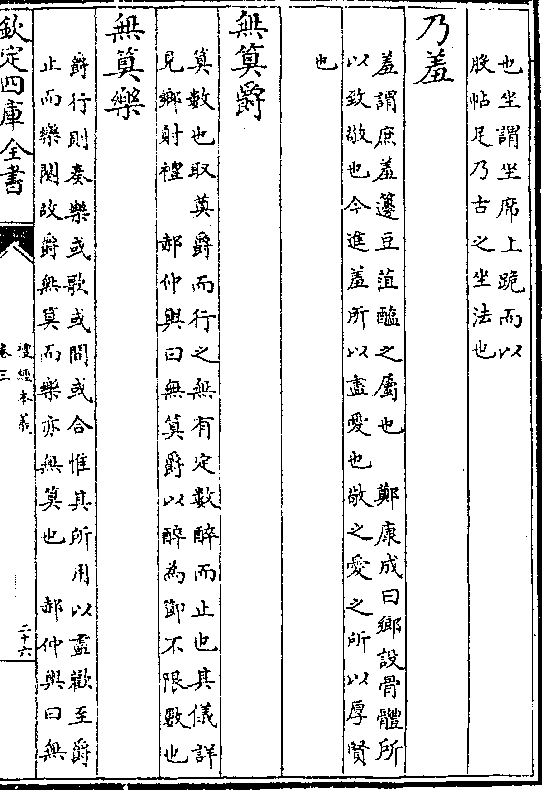 也坐謂坐席上跪而以
股帖足乃古之坐法也
乃羞
羞謂庶羞籩豆菹醢之屬也　鄭康成曰鄉設骨體所
以致敬也今進羞所以盡愛也敬之愛之所以厚賢
也
無筭爵
筭數也取奠爵而行之無有定數醉而止也其儀詳
見鄉射禮　郝仲輿曰無筭爵以醉為節不限數也
無筭樂
爵行則奏樂或歌或間或合惟其所用以盡歡至爵
止而樂闋故爵無筭而樂亦無筭也　郝仲輿曰無
欽定四庫全書
禮經本義
卷三
二十六